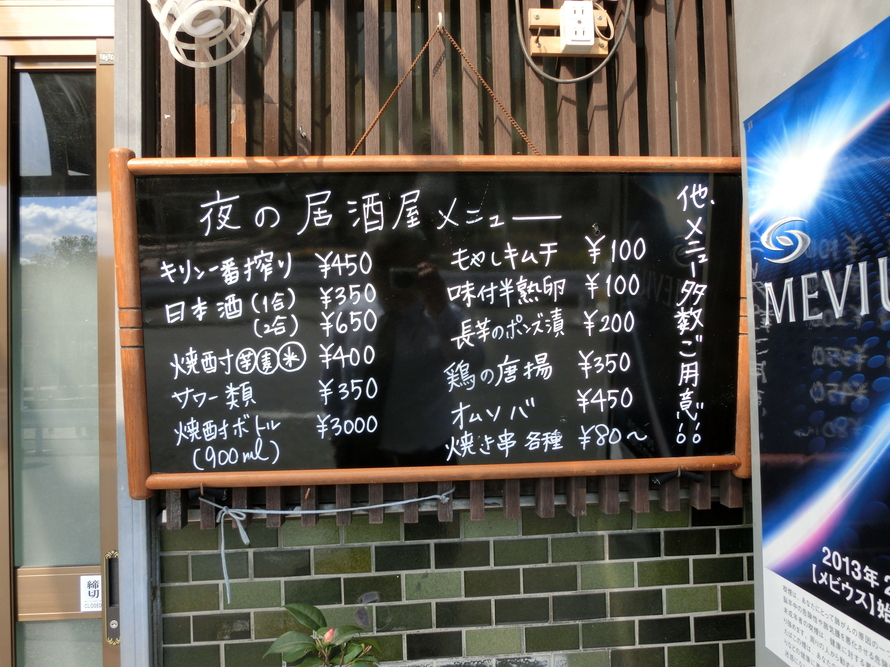 夜の居酒屋メニュー
キリン一番搾り ¥450
日本酒(1合) ¥350
(2合) ¥650
焼酎 芋 麦 米 ¥400
サワー類 ¥350
焼酎ボトル ¥3000
(900ml)
もやしキムチ ¥100
味付半熟卵 ¥100
長芋のポンズ漬 ¥200
鶏の唐揚 ¥350
オムソバ ¥450
焼き串 各種 ¥80〜
他、メニュー多数ご用意!!
締切
CLOSED
MEVIU
2013年 2
【メビウス】始